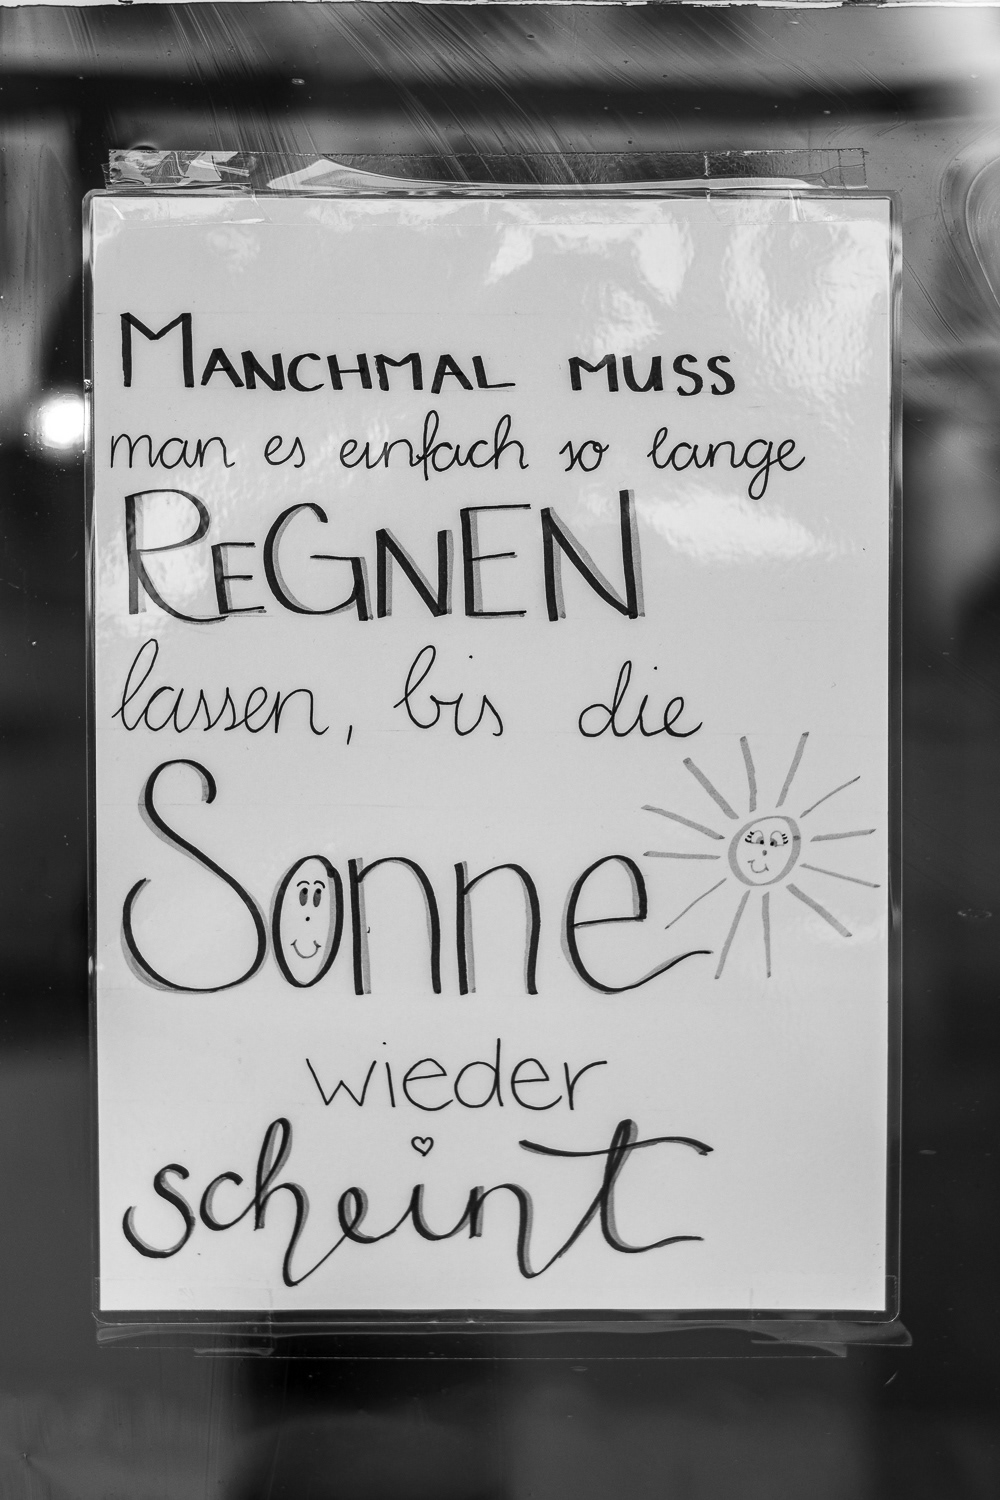 MANCHMAL MUSS
man es einfach so lange
REGNEN
lassen, bis die
Sonne
wieder
scheint